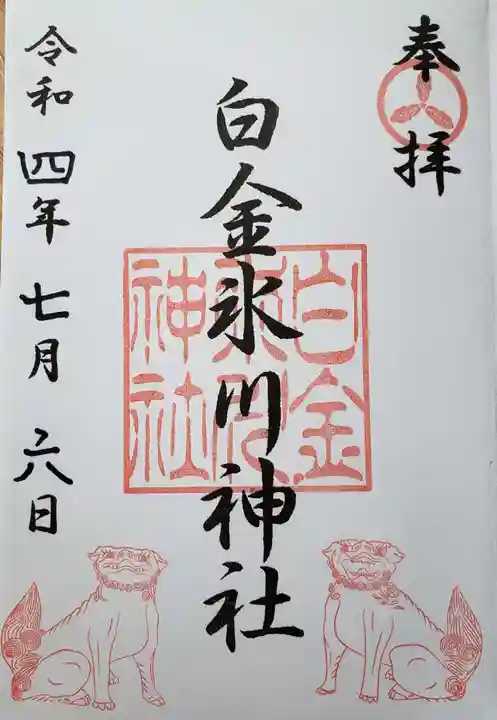 奉拝
白金氷川神社
白金
氷川
神社
令和四年七月六日